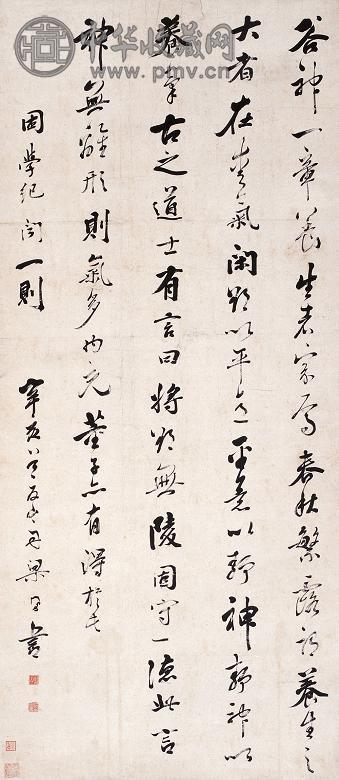 中华收藏网
www.pmv.cn
谷神一章養生者宗焉春秋繁露謂養生之
大者在愛氣閑欲以平意平意以靜神靜神以
養氣古之道士有言曰將欲無陵固守一德此言
神無離形則氣多内充董子亦有得於老
困學紀聞一則
辛亥八月山舟梁同書